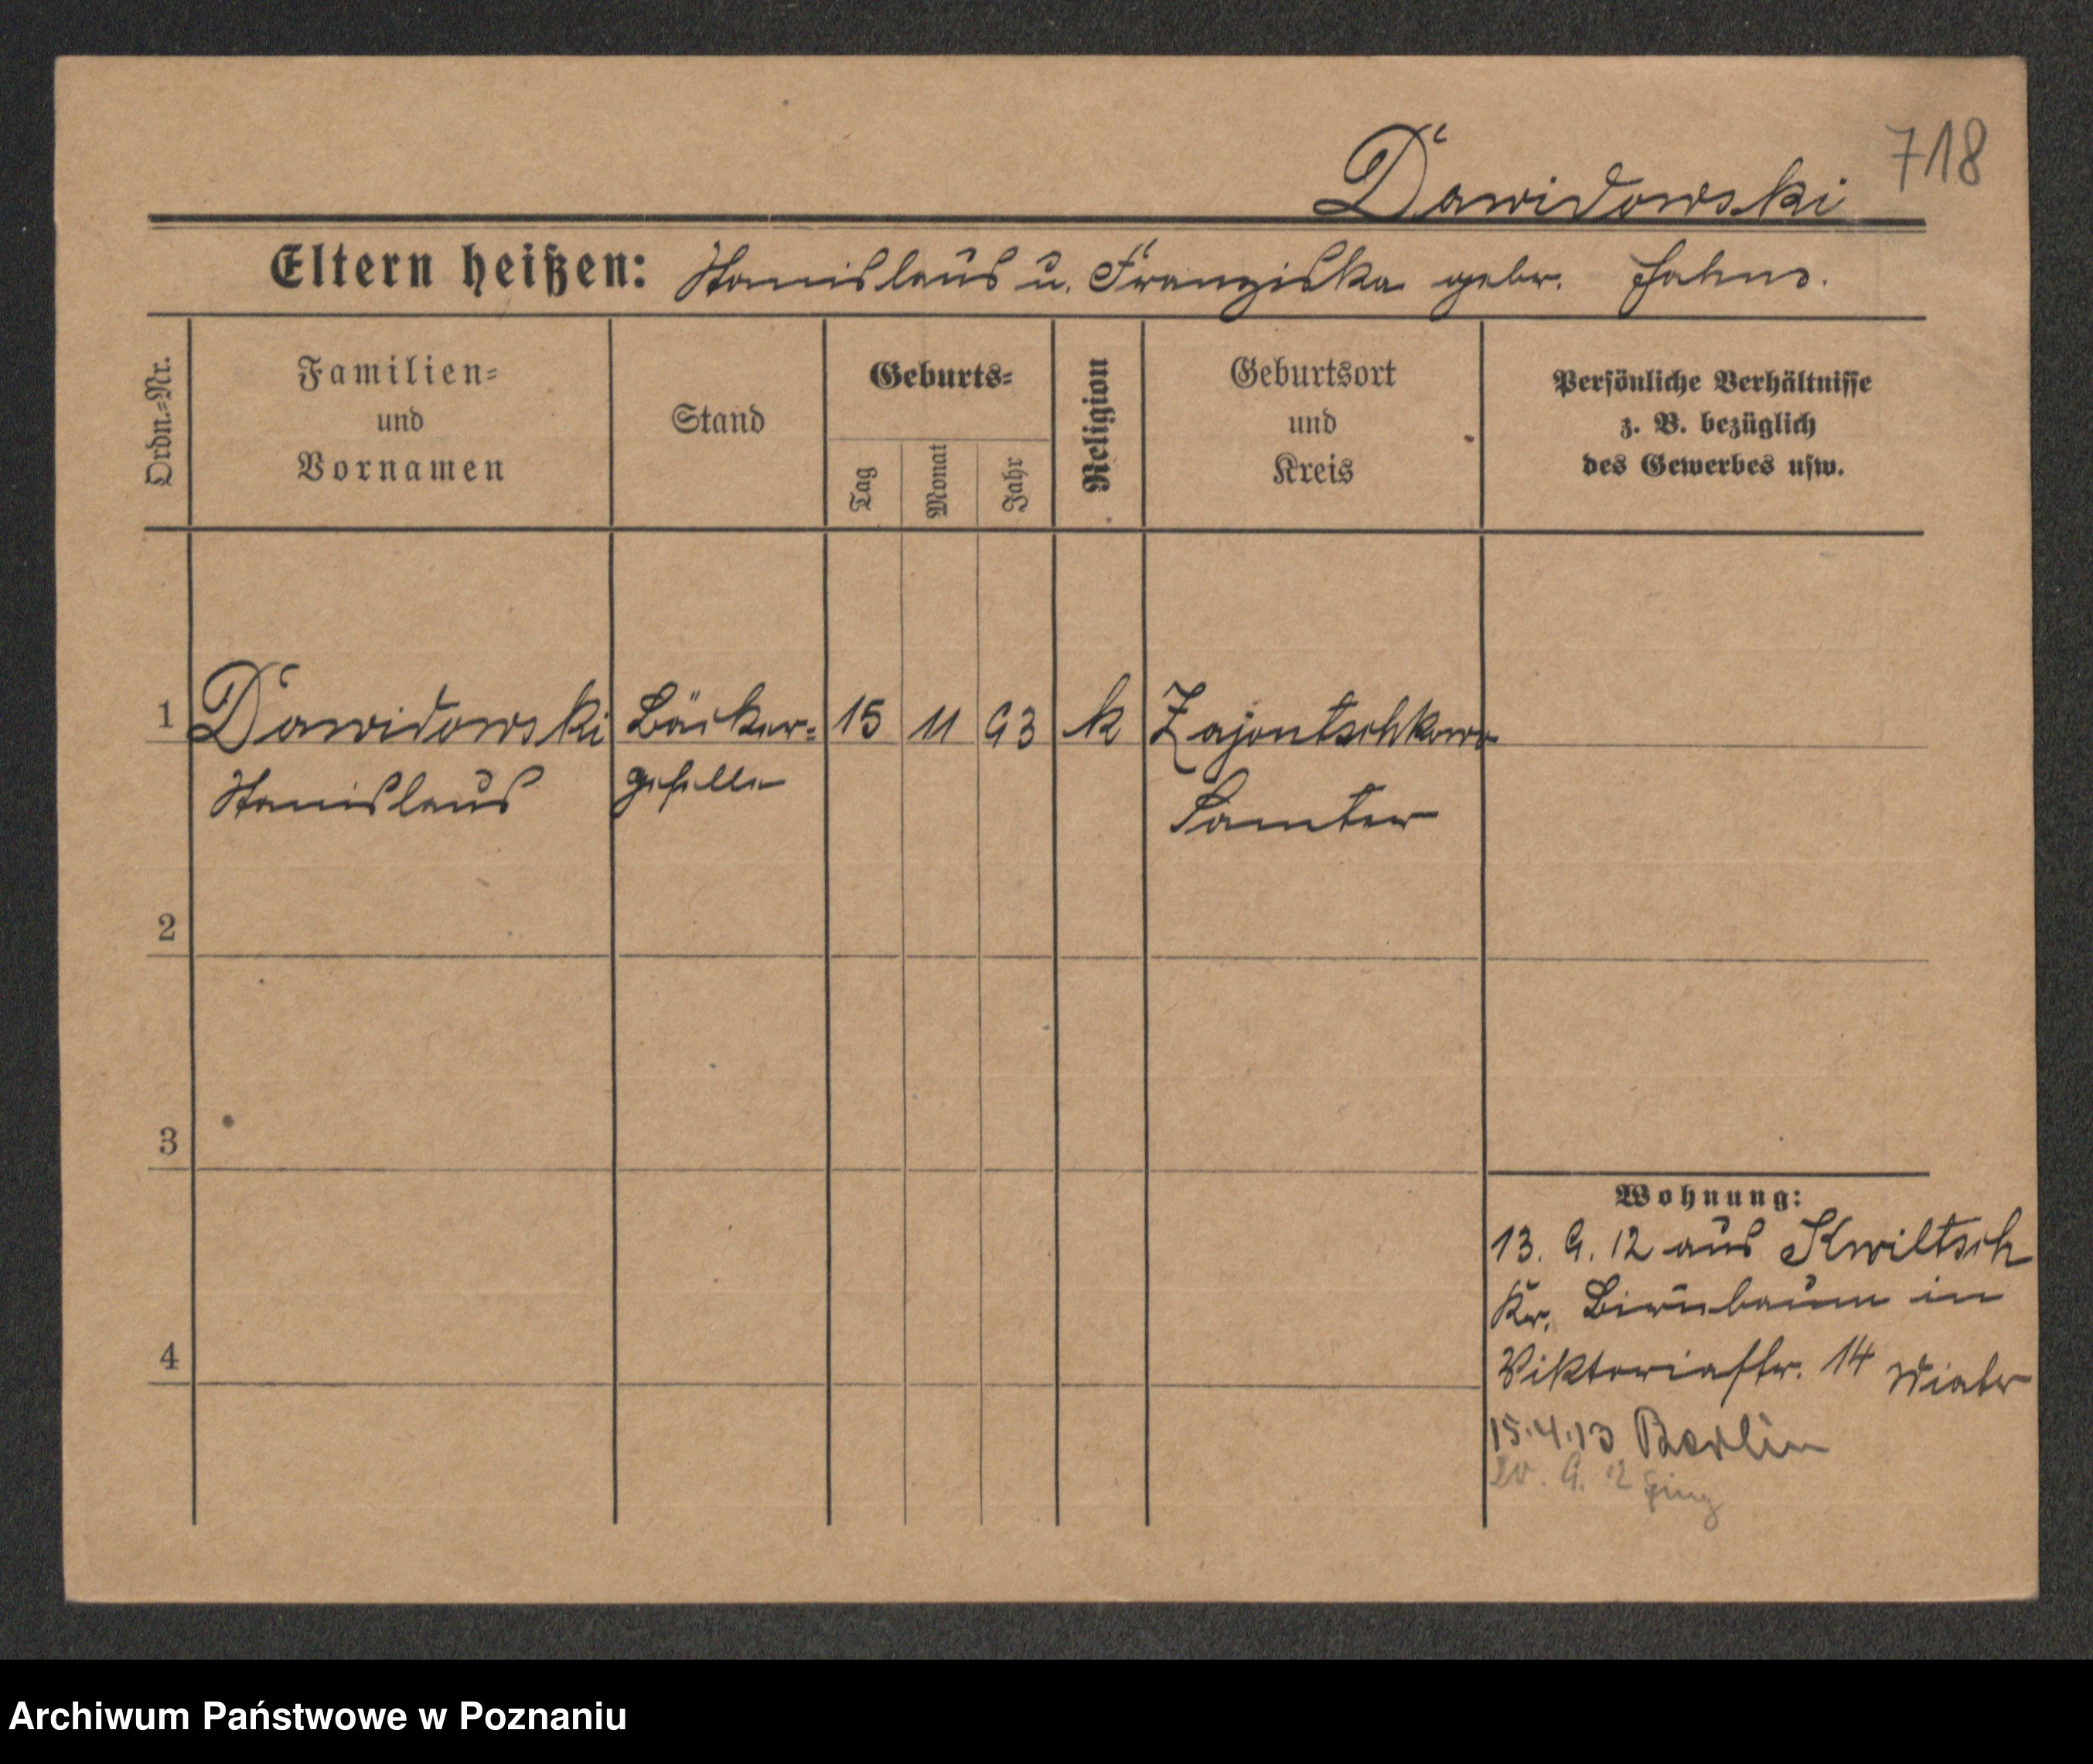 718
Dawidowski
Eltern heißen: Stanislaus u. Franziska gebr. Jahns.
Ordn.=Nr.
Familien=
und
Vornamen
Stand
Geburts=
Tag
Monat
Jahr
Religion
Geburtsort
und
Kreis
Persönliche Verhältnisse
z. B. bezüglich
des Gewerbes usw.
1 Dawidowski Bäcker= 15 11 93 k Zajontschkowo
Stanislaus geselle Samter
2
3
4
Wohnung:
13. 9. 12 aus Kwiltsch
Kr. Birnbaum in
Viktoriastr. 14
15.4.13 Berlin
20. 9. 12
Archiwum Państwowe w Poznaniu